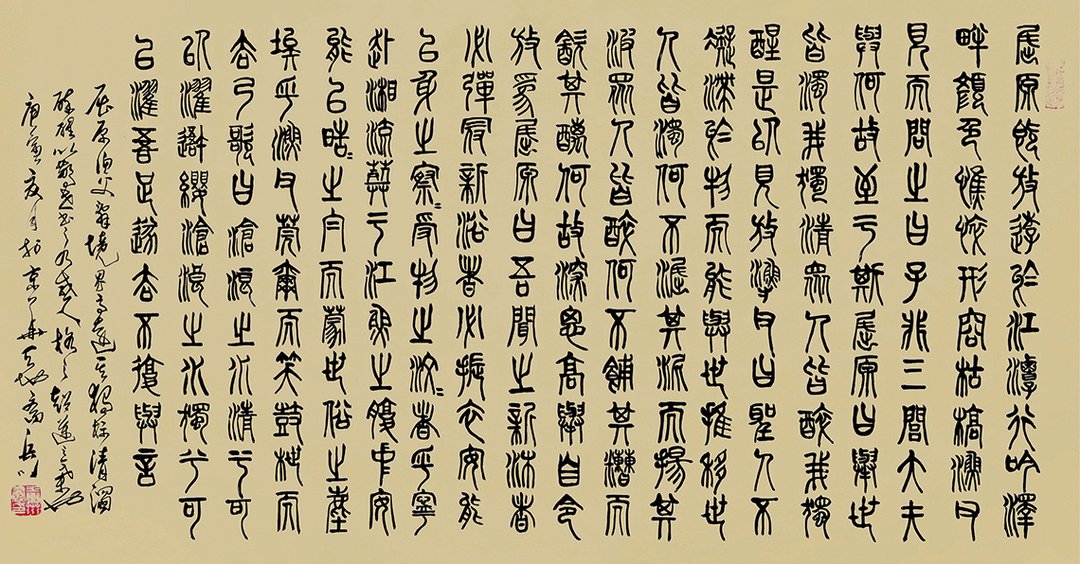 屈原既放遊於江潭行吟澤
畔顏色憔悴形容枯槁漁父
見而問之曰子非三閭大夫
與何故至于斯屈原曰舉世
皆濁我獨清眾人皆醉我獨
醒是以見放漁父曰聖人不
凝滯於物而能與世推移世
人皆濁何不淈其泥而揚其
波眾人皆醉何不餔其糟而
歠其醨何故深思高舉自令
放為屈原曰吾聞之新沐者
必彈冠新浴者必振衣安能
以身之察=受物之汶=者乎寧
赴湘流葬于江魚之腹中安
能以皓=之白而蒙世俗之塵
埃乎漁父莞爾而笑鼓枻而
去乃歌曰滄浪之水清兮可
以濯吾纓滄浪之水濁兮可
以濯吾足遂去不復與言
屈原漁父辭境界高遠其獨標清濁
醉醒以警世書之人格之超逸之
庚寅夏月於京華天地齋